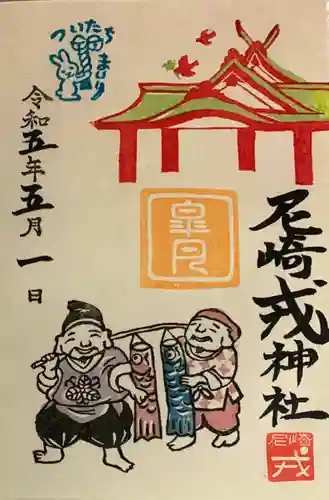 ついたち
まいり
令和五年五月一日
皐月
尼崎戎神社
尼崎
戎